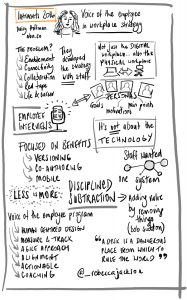 Intranets 2016
Voice of the employee
in workplace strategy
THE PROBLEM?
Enablement
Connectivity
Collaboration
Red tape
They
developed
the strategy
with staff
Not just the DIGITAL
workplace, also the
PHYSICAL WORKPLACE
PERSONAS
Goals
motivations
pain points
EMPLOYEE
INTERVIEWS
It's NOT about the
TECHNOLOGY
FOCUSED ON BENEFITS
VERSIONING
CO-AUTHORING
MOBILE
Staff wanted
ONE SYSTEM
LESS is MORE:
DISCIPLINED
SUBTRACTION
Adding value
by removing
things
(bob sutton)
Voice of the employee program
HUMAN CENTRED DESIGN
MEASURE & TRACK
AGILE APPROACH
ALIGNMENT
ACTIONABLE
COACHING
"A DESK IS A DANGEROUS
PLACE FROM WHICH TO
RULE THE WORLD"
@_rebeccajackson